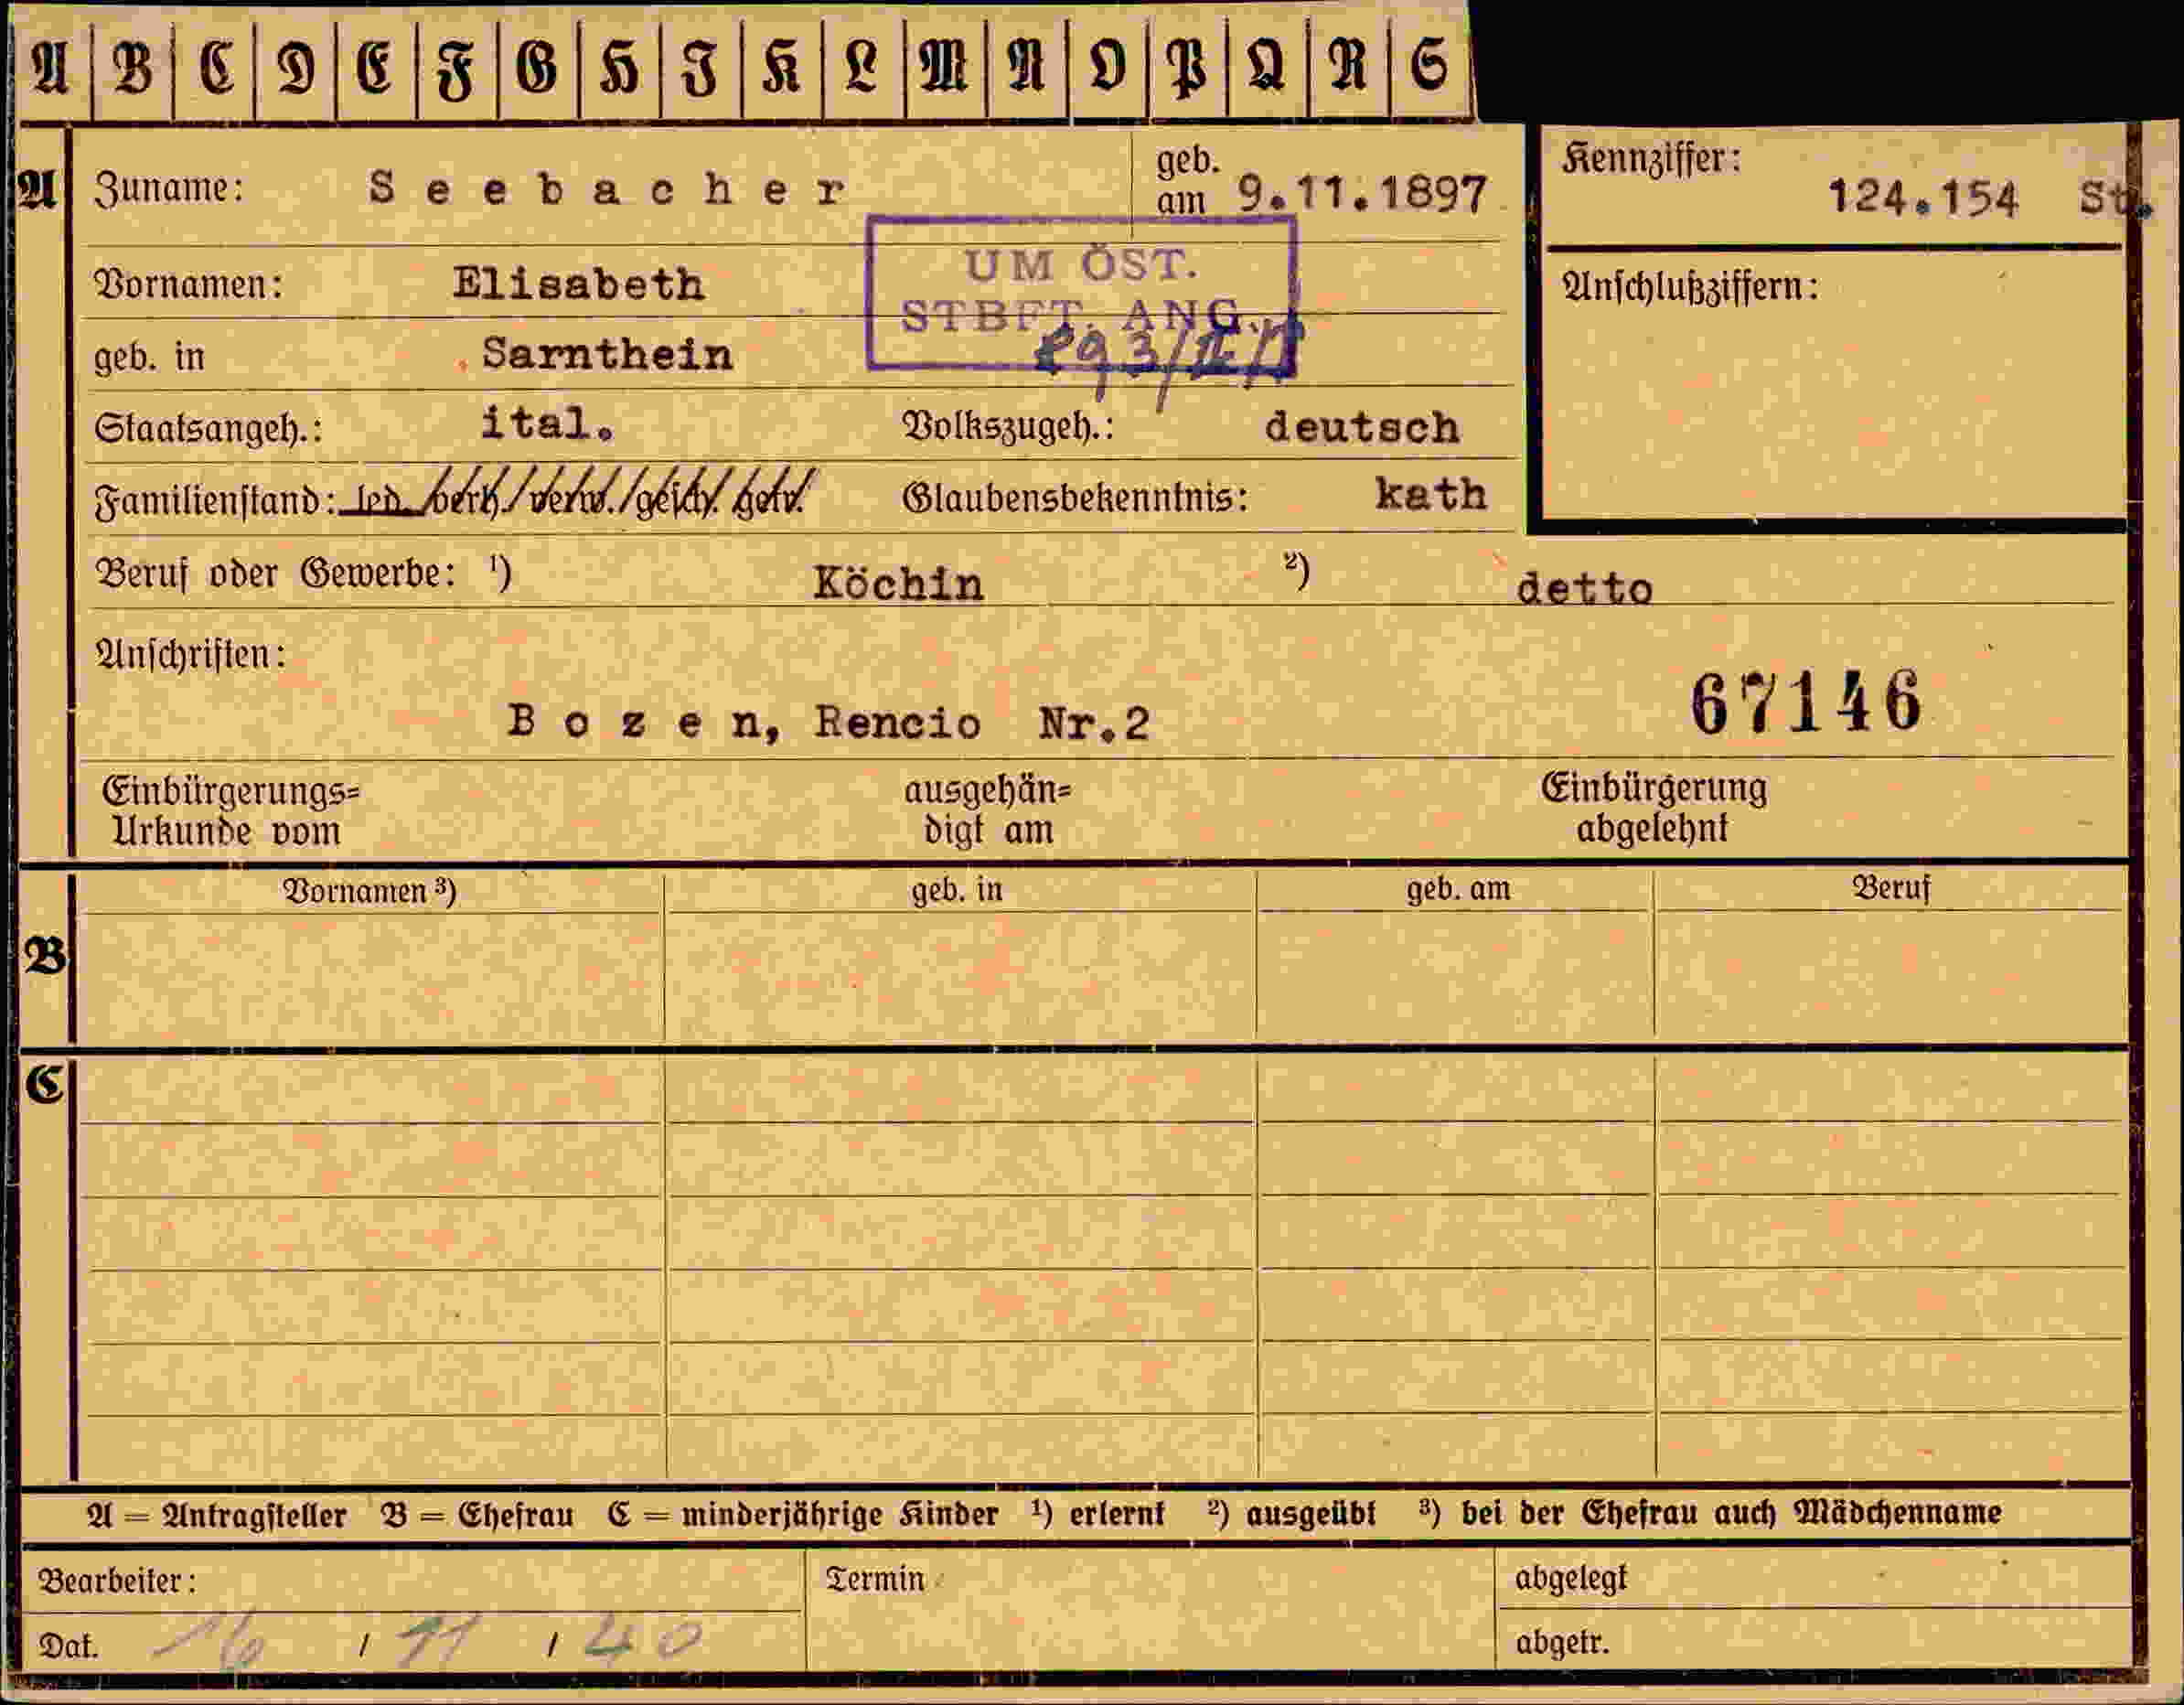 A B C D E F G H I K L M N O P Q R S
A Zuname: Seebacher geb. am 9.11.1897 Kennziffer: 124.154 St.
UM ÖST.
Vornamen: Elisabeth Anschlußziffern:
STBFT. ANG.
geb. in Sarnthein
Staatsangeh.: ital. Volkszugeh.: deutsch
Familienstand: led. verh./verw./gesch. getr. Glaubensbekenntnis: kath
Beruf oder Gewerbe: ¹) Köchin ²) detto
Anschriften:
Bozen, Rencio Nr.2 67146
Einbürgerungs= ausgehän= Einbürgerung
Urkunde vom digt am abgelehnt
Vornamen ³) geb. in geb. am Beruf
B
C
A = Antragsteller B = Ehefrau C = minderjährige Kinder ¹) erlernt ²) ausgeübt ³) bei der Ehefrau auch Mädchenname
Bearbeiter: Termin abgelegt
Dat. 16 / 11 / 40 abgetr.